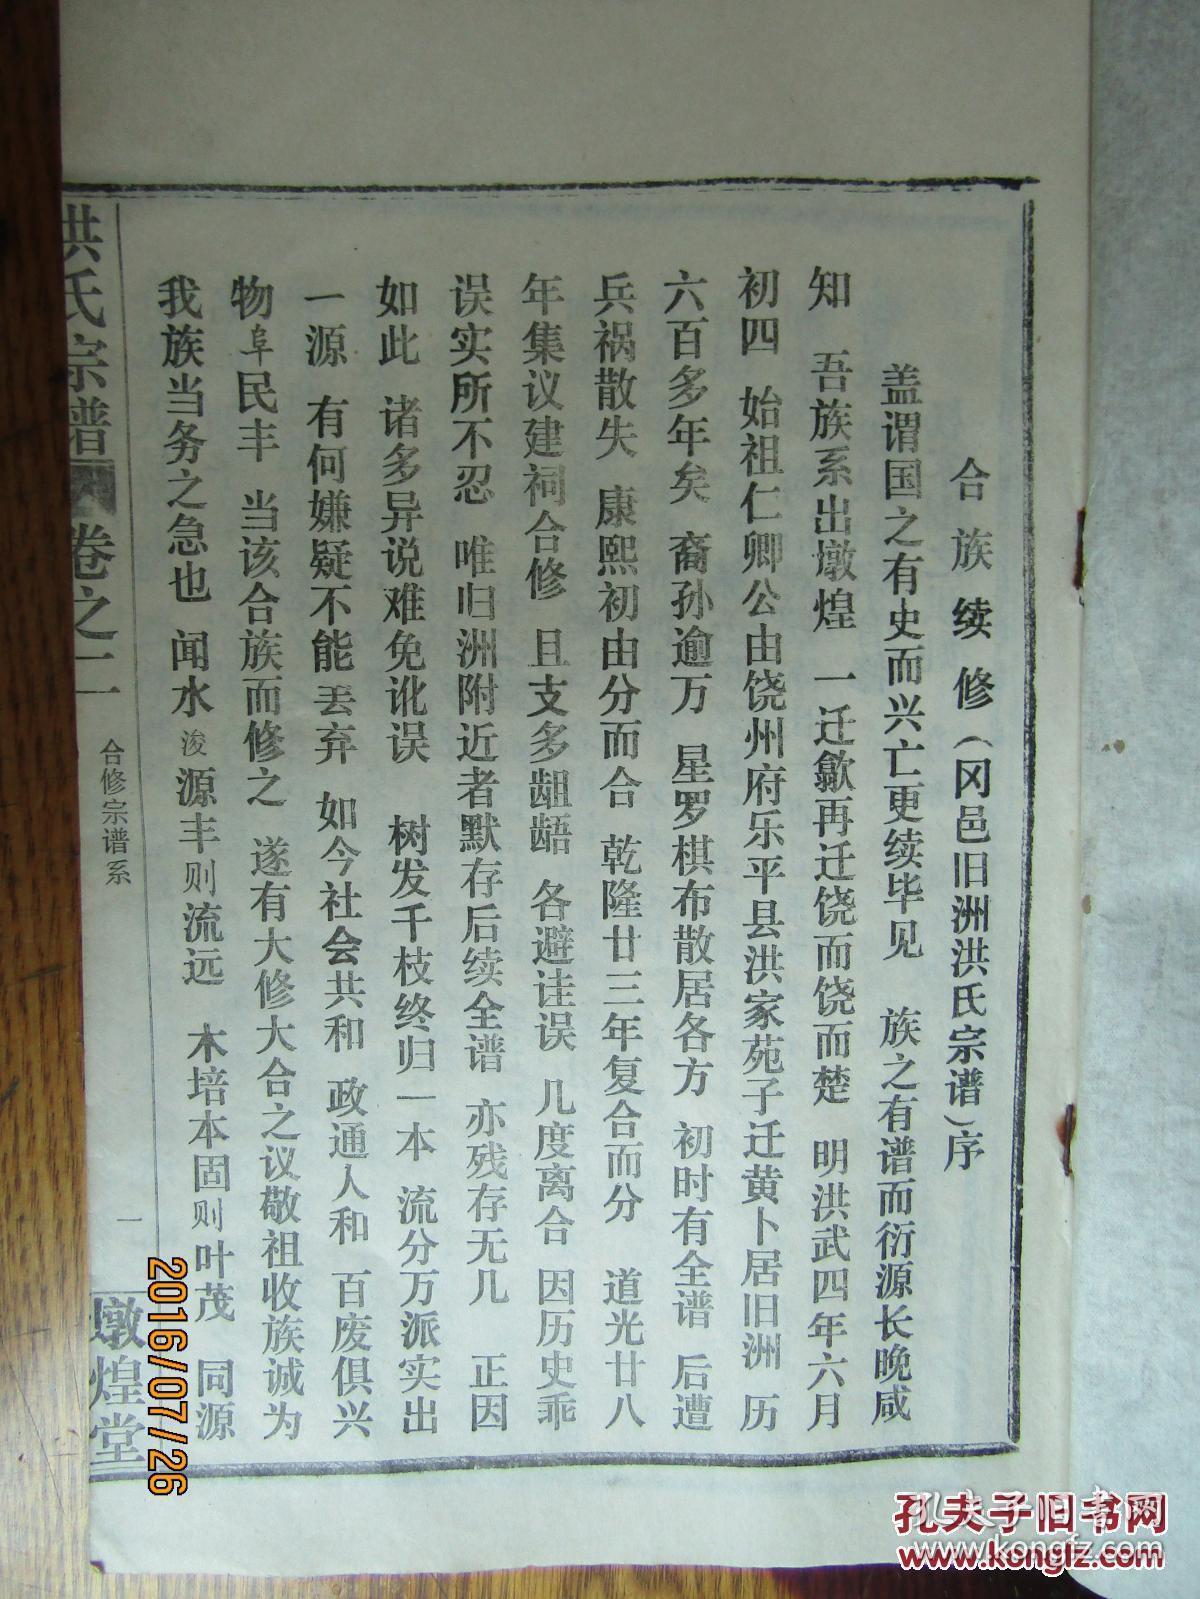 合族续修（冈邑旧洲洪氏宗谱）序
盖谓国之有史而兴亡更续毕见　族之有谱而衍源长晚咸
知　吾族系出墩煌　一迁歙再迁饶而饶而楚　明洪武四年六月
初四　始祖仁卿公由饶州府乐平县洪家苑子迁黄卜居旧洲　历
六百多年矣　裔孙逾万　星罗棋布散居各方　初时有全谱　后遭
兵祸散失　康熙初由分而合　乾隆廿三年复合而分　道光廿八
年集议建祠合修　且支多龃龉　各避诖误　几度离合　因历史乖
误实所不忍　唯归洲附近者默存后续全谱　亦残存无几　正因
如此　诸多异说难免讹误　树发千枝终归一本　流分万派实出
一源　有何嫌疑不能丢弃　如今社会共和　政通人和　百废俱兴
物阜民丰　当该合族而修之　遂有大修大合之议敬祖收族诚为
我族当务之急也　闻水浚源丰则流远　木培本固则叶茂　同源
洪氏宗谱　卷之二　合修宗谱系　一　墩煌堂
2016/07/26
孔夫子旧书网
www.kongfz.com